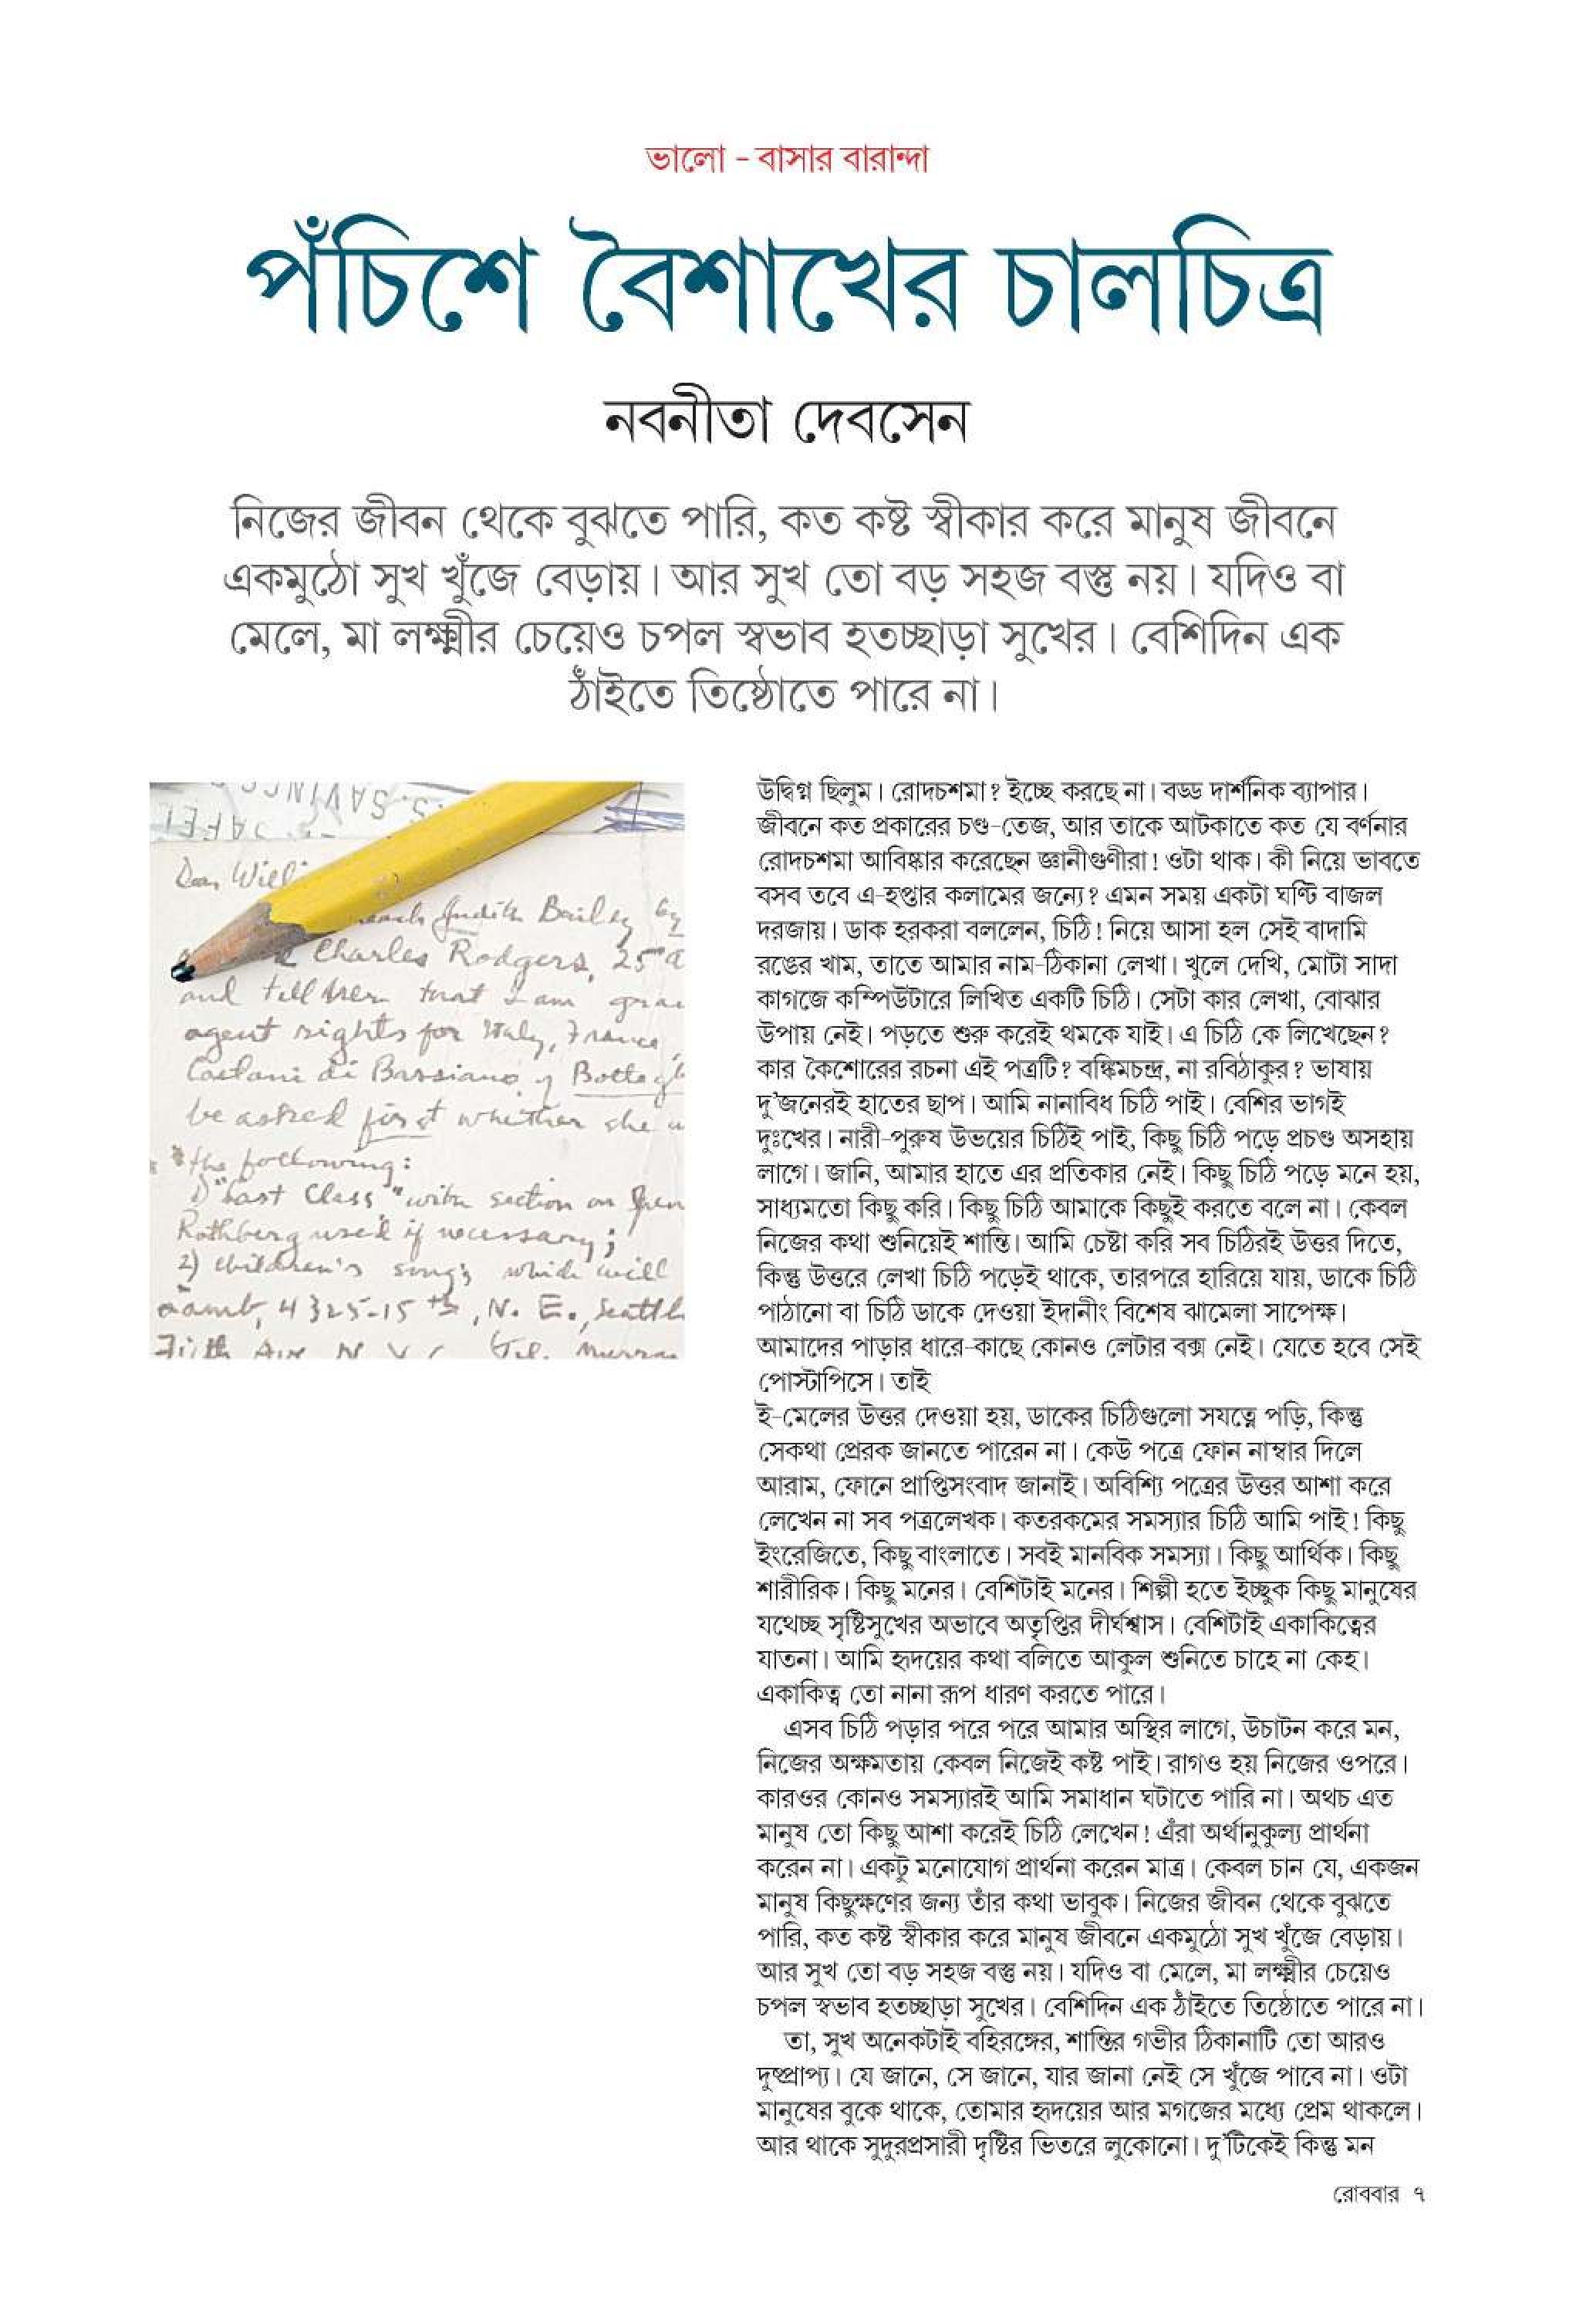 ভালো - বাসার বারান্দা
পঁচিশে বৈশাখের চালচিত্র
নবনীতা দেবসেন
নিজের জীবন থেকে বুঝতে পারি, কত কষ্ট স্বীকার করে মানুষ জীবনে
একমুঠো সুখ খুঁজে বেড়ায়। আর সুখ তো বড় সহজ বস্তু নয়। যদিও বা
মেলে, মা লক্ষ্মীর চেয়েও চপল স্বভাব হতচ্ছাড়া সুখের। বেশিদিন এক
ঠাঁইতে তিষ্ঠোতে পারে না।
Charles Rodgers, 25
and tell them that I am
agent rights for Italy, France,
be asked first whether she
the following:
1) "Last Class" with section on
Rothberg used if necessary;
2) children's songs which will
4325-15th, N. E., Seattle
উদ্বিগ্ন ছিলুম। রোদচশমা? ইচ্ছে করছে না। বড্ড দার্শনিক ব্যাপার।
জীবনে কত প্রকারের চণ্ড-তেজ, আর তাকে আটকাতে কত যে বর্ণনার
রোদচশমা আবিষ্কার করেছেন জ্ঞানীগুণীরা! ওটা থাক। কী নিয়ে ভাবতে
বসব তবে এ-হপ্তার কলামের জন্যে? এমন সময় একটা ঘণ্টি বাজল
দরজায়। ডাক হরকরা বললেন, চিঠি! নিয়ে আসা হল সেই বাদামি
রঙের খাম, তাতে আমার নাম-ঠিকানা লেখা। খুলে দেখি, মোটা সাদা
কাগজে কম্পিউটারে লিখিত একটি চিঠি। সেটা কার লেখা, বোঝার
উপায় নেই। পড়তে শুরু করেই থমকে যাই। এ চিঠি কে লিখেছেন?
কার কৈশোরের রচনা এই পত্রটি? বঙ্কিমচন্দ্র, না রবিঠাকুর? ভাষায়
দু'জনেরই হাতের ছাপ। আমি নানাবিধ চিঠি পাই। বেশির ভাগই
দুঃখের। নারী-পুরুষ উভয়ের চিঠিই পাই, কিছু চিঠি পড়ে প্রচণ্ড অসহায়
লাগে। জানি, আমার হাতে এর প্রতিকার নেই। কিছু চিঠি পড়ে মনে হয়,
সাধ্যমতো কিছু করি। কিছু চিঠি আমাকে কিছুই করতে বলে না। কেবল
নিজের কথা শুনিয়েই শান্তি। আমি চেষ্টা করি সব চিঠিরই উত্তর দিতে,
কিন্তু উত্তরে লেখা চিঠি পড়েই থাকে, তারপরে হারিয়ে যায়, ডাকে চিঠি
পাঠানো বা চিঠি ডাকে দেওয়া ইদানীং বিশেষ ঝামেলা সাপেক্ষ।
আমাদের পাড়ার ধারে-কাছে কোনও লেটার বক্স নেই। যেতে হবে সেই
পোস্টাপিসে। তাই
ই-মেলের উত্তর দেওয়া হয়, ডাকের চিঠিগুলো সযত্নে পড়ি, কিন্তু
সেকথা প্রেরক জানতে পারেন না। কেউ পত্রে ফোন নাম্বার দিলে
আরাম, ফোনে প্রাপ্তিসংবাদ জানাই। অবিশ্যি পত্রের উত্তর আশা করে
লেখেন না সব পত্রলেখক। কতরকমের সমস্যার চিঠি আমি পাই! কিছু
ইংরেজিতে, কিছু বাংলাতে। সবই মানবিক সমস্যা। কিছু আর্থিক। কিছু
শারীরিক। কিছু মনের। বেশিটাই মনের। শিল্পী হতে ইচ্ছুক কিছু মানুষের
যথেচ্ছ সৃষ্টিসুখের অভাবে অতৃপ্তির দীর্ঘশ্বাস। বেশিটাই একাকিত্বের
যাতনা। আমি হৃদয়ের কথা বলিতে আকুল শুনিতে চাহে না কেহ।
একাকিত্ব তো নানা রূপ ধারণ করতে পারে।
এসব চিঠি পড়ার পরে পরে আমার অস্থির লাগে, উচাটন করে মন,
নিজের অক্ষমতায় কেবল নিজেই কষ্ট পাই। রাগও হয় নিজের ওপরে।
কারওর কোনও সমস্যারই আমি সমাধান ঘটাতে পারি না। অথচ এত
মানুষ তো কিছু আশা করেই চিঠি লেখেন! এঁরা অর্থানুকুল্য প্রার্থনা
করেন না। একটু মনোযোগ প্রার্থনা করেন মাত্র। কেবল চান যে, একজন
মানুষ কিছুক্ষণের জন্য তাঁর কথা ভাবুক। নিজের জীবন থেকে বুঝতে
পারি, কত কষ্ট স্বীকার করে মানুষ জীবনে একমুঠো সুখ খুঁজে বেড়ায়।
আর সুখ তো বড় সহজ বস্তু নয়। যদিও বা মেলে, মা লক্ষ্মীর চেয়েও
চপল স্বভাব হতচ্ছাড়া সুখের। বেশিদিন এক ঠাঁইতে তিষ্ঠোতে পারে না।
তা, সুখ অনেকটাই বহিরঙ্গের, শান্তির গভীর ঠিকানাটি তো আরও
দুষ্প্রাপ্য। যে জানে, সে জানে, যার জানা নেই সে খুঁজে পাবে না। ওটা
মানুষের বুকে থাকে, তোমার হৃদয়ের আর মগজের মধ্যে প্রেম থাকলে।
আর থাকে সুদুরপ্রসারী দৃষ্টির ভিতরে লুকোনো। দু'টিকেই কিন্তু মন
রোববার ৭